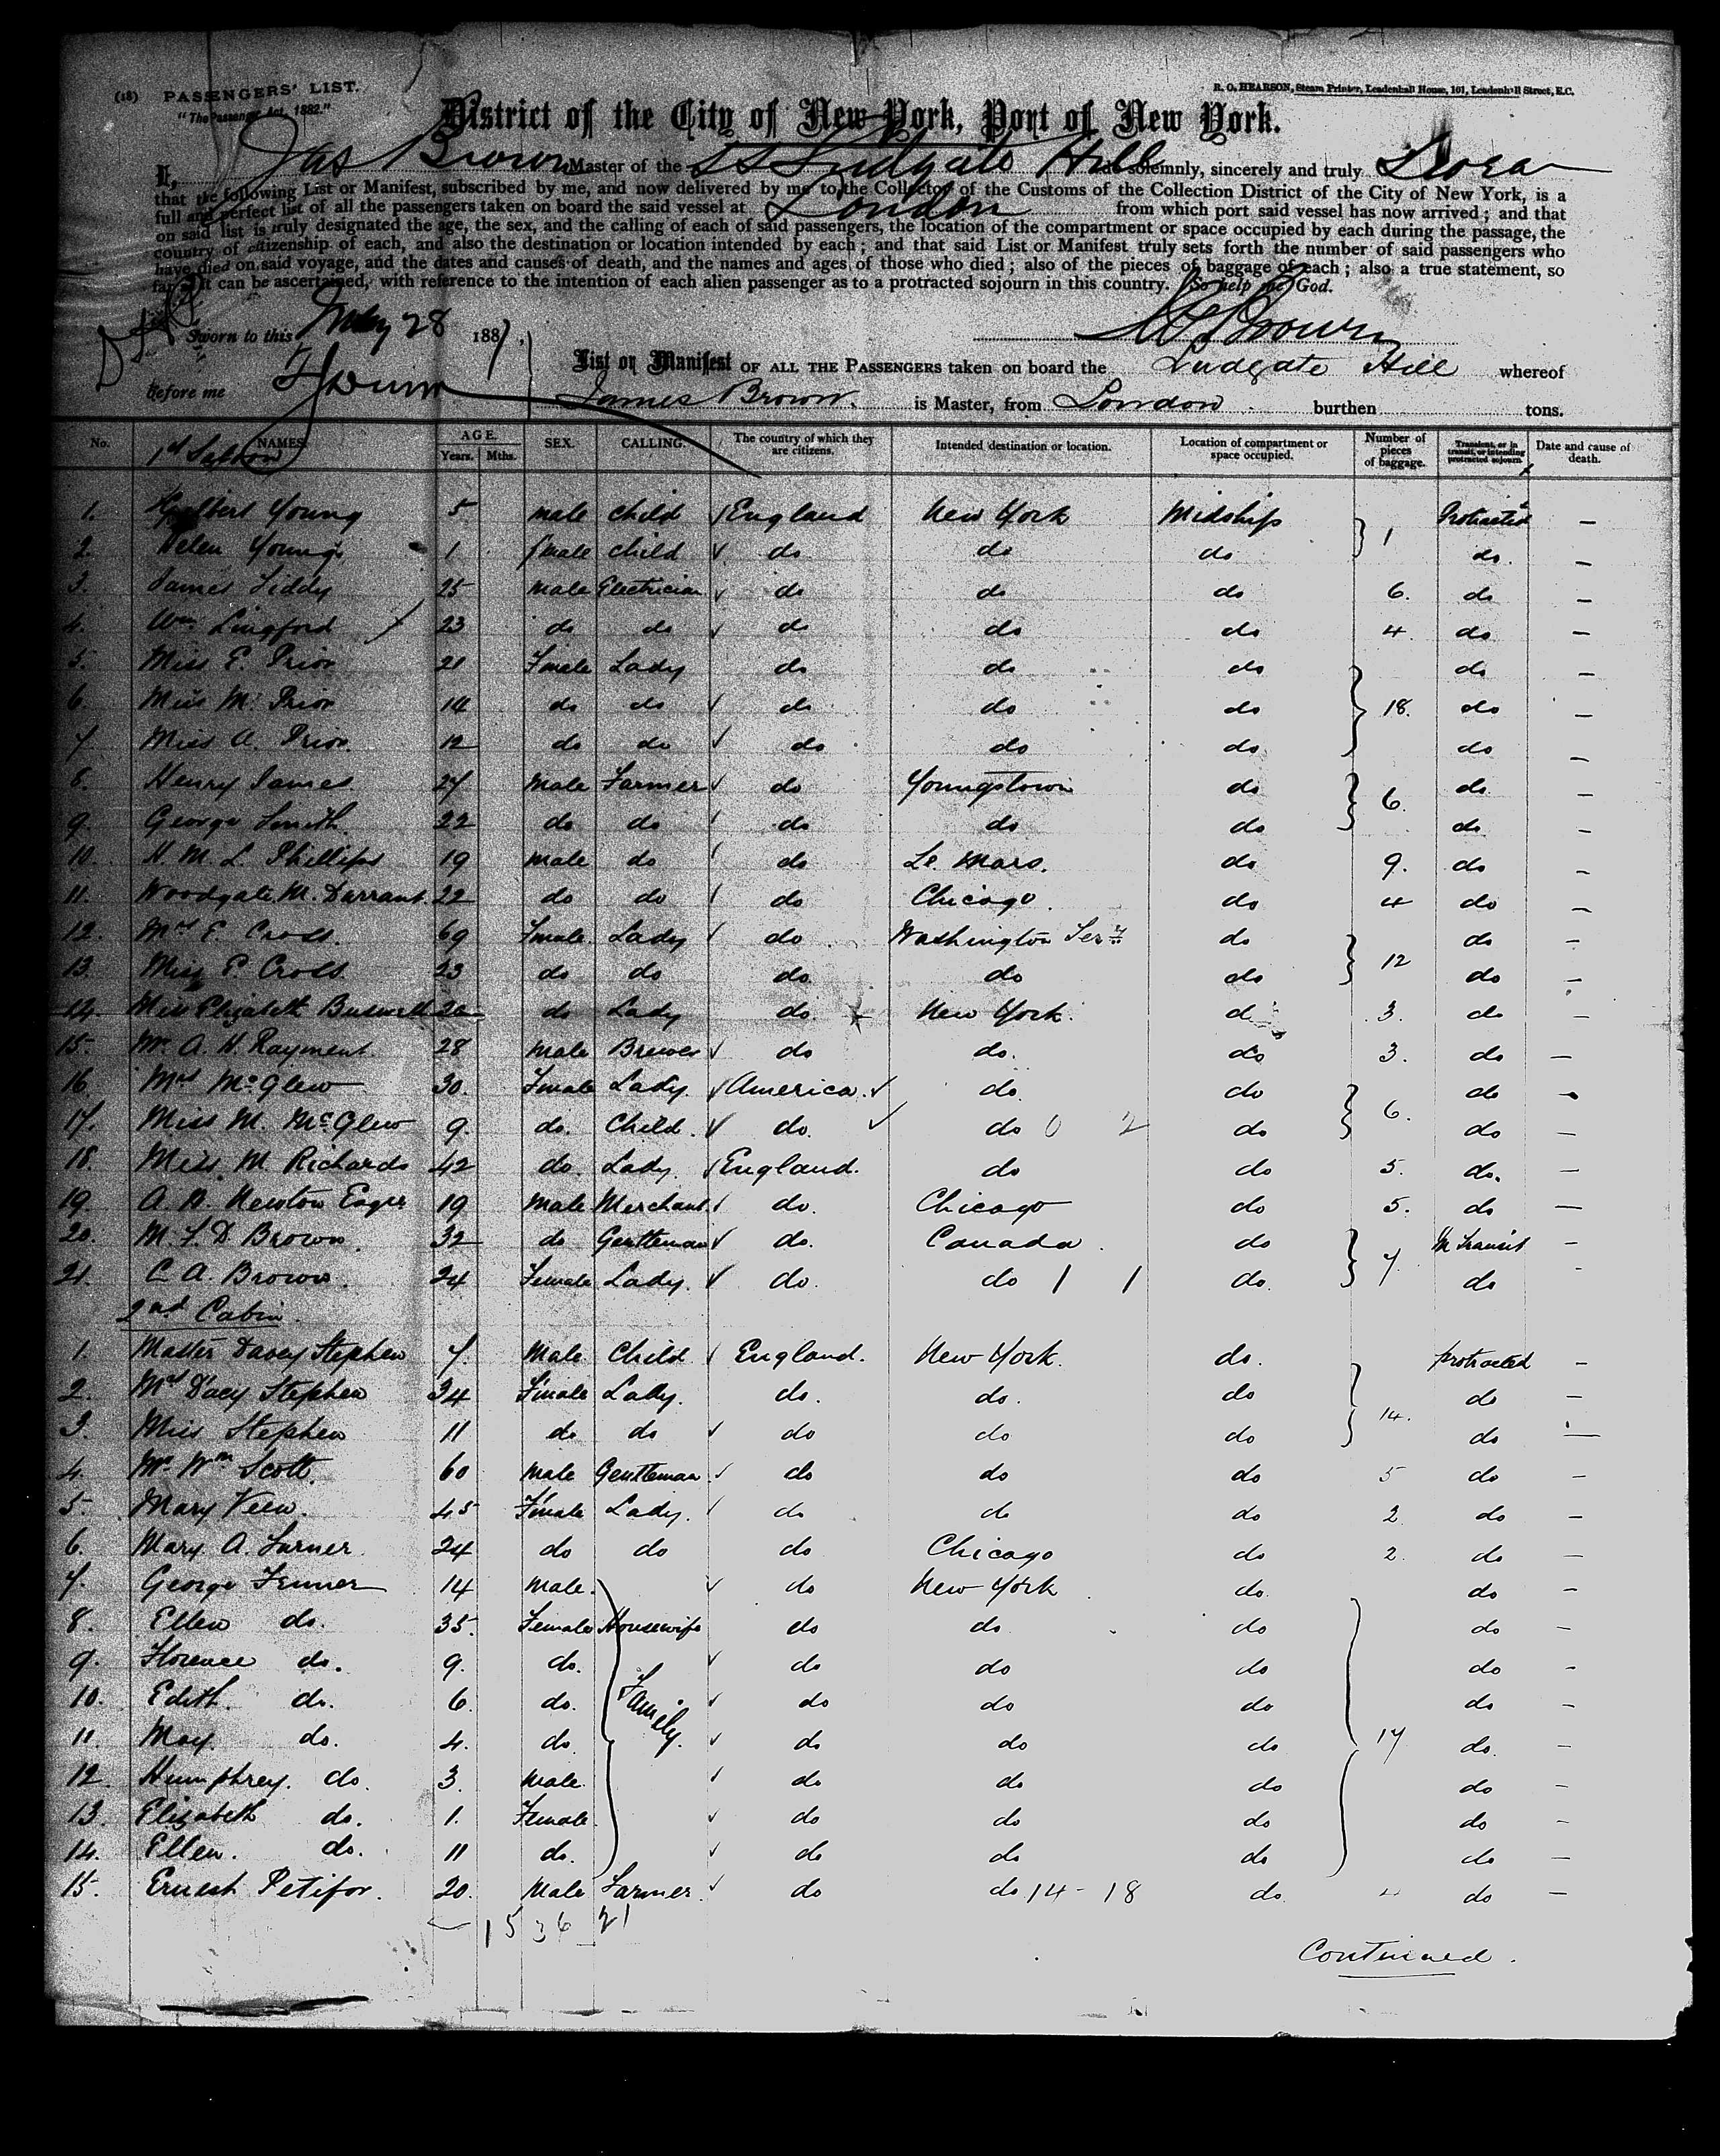 (18) PASSENGERS' LIST.
"The Passenger Act, 1882."
R. O. HEARSON, Steam Printer, Leadenhall House, 101, Leadenhall Street, E.C.
District of the City of New York, Port of New York.
I, Jas Brown Master of the SS Ludgate Hill solemnly, sincerely and truly Swear
that the following List or Manifest, subscribed by me, and now delivered by me to the Collector of the Customs of the Collection District of the City of New York, is a
full and perfect list of all the passengers taken on board the said vessel at London from which port said vessel has now arrived; and that
on said list is truly designated the age, the sex, and the calling of each of said passengers, the location of the compartment or space occupied by each during the passage, the
country of citizenship of each, and also the destination or location intended by each; and that said List or Manifest truly sets forth the number of said passengers who
have died on said voyage, and the dates and causes of death, and the names and ages of those who died; also of the pieces of baggage of each; also a true statement, so
far as it can be ascertained, with reference to the intention of each alien passenger as to a protracted sojourn in this country. So help me God.
Sworn to this May 28 1887, Brown
List or Manifest OF ALL THE PASSENGERS taken on board the Ludgate Hill whereof
Before me
James Brown is Master, from London burthen tons.
No. NAMES. AGE. Years. Mths. SEX. CALLING. The country of which they are citizens. Intended destination or location. Location of compartment or space occupied. Number of pieces of baggage. Transient, or in transit, or intending protracted sojourn. Date and cause of death.
1st Saloon
1. Young 5 male child England New York Midship 1 Protracted —
2. Helen Young 1 female child do do do do. —
3. James Liddy 25 male Electrician do do do 6. do —
4. Wm Lingford 23 do do do do do 4. do —
5. Miss E. Prior 21 Female Lady do do do do —
6. Miss M. Prior 14 do do do do do 18. do —
7. Miss A. Prior. 12 do do do do do do —
8. Henry James 27 Male Farmer do Youngstown do 6. do —
9. George Smith. 22 do do do do do do —
10. H. M. L. Phillips 19 male do do Le Mars. do 9. do —
11. Woodgate M. Darrant 22 do do do Chicago. do 4 do —
12. Mrs E. Cross. 69 Female Lady do Washington Terry do 12 do —
13. Miss E Cross 23 do do do. do do do —
14. Miss Elizabeth Buswell do Lady do New York. do 3. do —
15. Mr A. H. Rayment 28 male Brewer do do. do 3. do —
16. Mrs McGlew 30. Female Lady. America. do. do 6. do —
17. Miss M. McGlew 9. do. Child. do. do 0 2 do do —
18. Miss M. Richards 42 do. Lady. England. do do 5. do. —
19. A. B. Newton Esqre 19 Male Merchant do. Chicago do 5. do —
20. M. L. D Brown. 32 do Gentleman do. Canada. do 7 In Transit —
21. C. A. Brown. 24 Female Lady. do. do 1 1 do. do
2nd Cabin.
1. Master Davey Stephen 7. Male Child England. New York. do. protracted —
2. Mrs Stephen 34 Female Lady. do. do. do 14. do —
3. Miss Stephen 11 do do do do do do —
4. Mr Wm Scott. 60 Male Gentleman do do do 5 do —
5. Mary 45 Female Lady. do do do 2 do —
6. Mary A. Turner. 24 do do do Chicago do 2. do —
7. George Fenner 14 Male. do New York do. do —
8. Ellen do. 35. Female Housewife do do do do —
9. Florence do. 9. do. do do do do —
10. Edith. do. 6. do. Family. do do do do —
11 May. do. 4. do. do do do 17 do. —
12. Humphrey. do. 3. Male. do do do do —
13. Elizabeth do. 1. Female. do do do do —
14. Ellen. do. 11 do. do do do do —
15. Ernest Petifor. 20. Male Farmer. do do 14 - 18 do. do —
15 36 21
Continued.